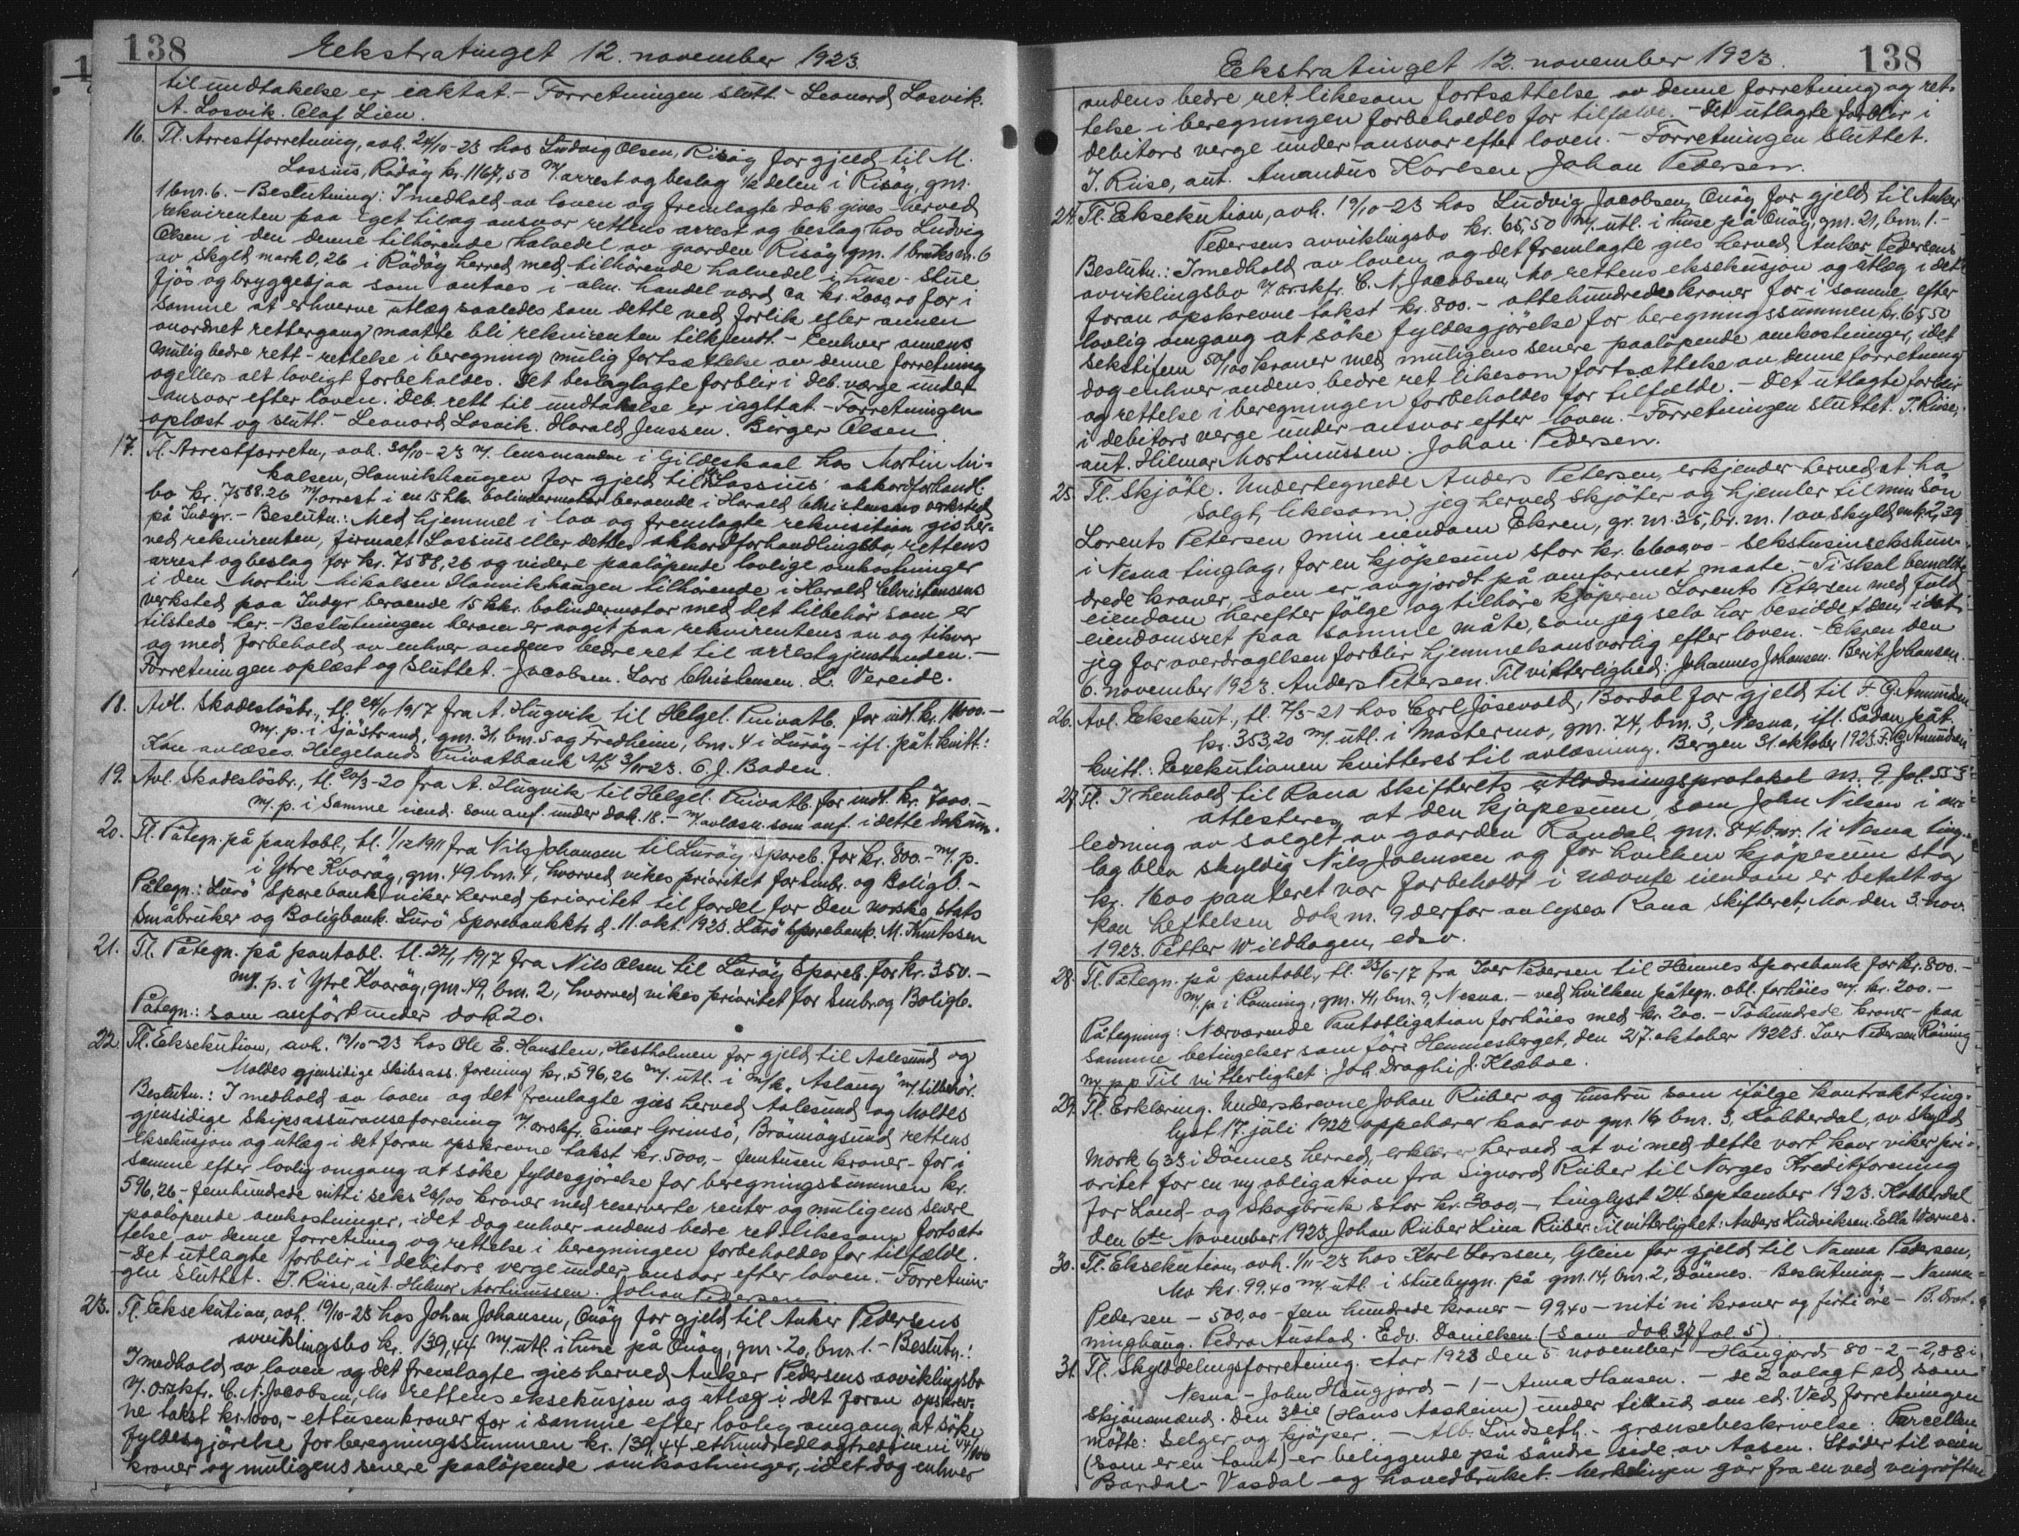 138
Ekstratinget 12. november 1923
til undtakelse er iaktat. - Forretningen slutt. - Leonard Losvik.
A. Losvik. Olaf Lien.
16. Tl. Arrestforretning, avh. 24/10-23 hos Ludvig Olsen, Risöy for gjeld til M.
Lossius, Rödöy kr. 1167,50 m/ arrest og beslag 1/2 delen i Risöy, gm.
1 bnr. 6. - Beslutning: I medhold av loven og fremlagte dok gives herved
rekvirenten paa eget tilog ansvar rettens arrest og beslag hos Ludvig
Olsen i den denne tilhörende halvedel av gaarden Risöy gm. 1 bruks nr. 6
av skyld mark 0,26 i Rödöy herred med tilhörende halvedel i huse - stue,
fjös og bryggesjaa som antaes i alm. handel værd ca kr. 2000,00 for i
samme at erhverve utlæg saaledes som dette ved forlik eller annen
anordnet rettergang maatte bli rekvirenten tilkjendt. - Eenhver annens
mulig bedre rett - rettelse i beregning mulig fortsættelse av denne forretning
og ellers alt lovligt forbeholdes. Det beslaglagte forbler i deb. værge under
ansvar efter loven. Deb. rett til undtakelse er iagttat. - Forretningen
oplæst og slutt. - Leonard Losvik. Harald Jenssen. Berger Olsen
17. Tl. Arrestforretn., avh. 30/10-23 v/ lensmanden i Gildeskaal hos Mortin Mi-
kalsen, Hannikhaugen for gjeld til Fa Lossius' akkordforhandl.
bo kr. 7588.26 m/ arrest i en 15 hkr. bolindermotor beroende i Harald Christensens verksted
på Indyr. - Beslutn.: Med hjemmel i lov og fremlagte rekvisition gis her-
ved rekvirenten, firmaet Lossius eller dettes akkordforhandlingsbo, rettens
arrest og beslag for kr. 7588,26 og videre paalöpende lovlige omkostninger
i den Mortin Mikalsen Hannikhaugen tilhörende i Harald Christensens
verksted paa Indyr beroende 15 hkr. bolindermotor med det tilbehör som er
tilstede her. - Beslutningen herom er avgit paa rekvirentens an og tilsvar
og med forbehold av enhver andens bedre ret til arrestgjenstanden. -
Forretningen oplæst og sluttet. - Jacobsen. Lars Christensen. L. Vereide.
18. Avl. Skadeslösbr., tl. 24/1 1917 fra A. Hugvik til Helgel. Privatb. for indt. kr. 11000. -
m/ p. i Sjöstrand, gm. 31, bm. 5 og Fredheim, bm. 4 i Luröy - ifl. påt. kvitt.:
Kan avlæses. Helgelands Privatbank A/S 3/11-23. C. J. Baden.
19. Avl. Skadeslösbr., tl. 20/3-20 fra A. Hugvik til Helgel. Privatb. for indt. kr. 7000. -
m/ p. i samme eiend. som anf. under dok. 18. - m/ avlæsn. som anf. i dette dokum.
20. Tl. Påtegn. på pantobl., tl. 1/12 1911 fra Nils Johansen til Luröy Spareb. for kr. 800. - m/ p.
i Ytre Kvaröy, gm. 49 bm. 4, hvorved vikes prioritet for Smbr. og Boligb. -
Påtegn.: Lurö Sparebank viker herved prioritet til fordel for Den norske stats
Småbruker og Boligbank. Lurö Sparebankkt. d. 11. okt. 1923. Lurö Sparebank. M. Knutssen
21. Tl. Påtegn. på pantobl. tl. 27/1 1917 fra Nils Olsen til Luröy Spareb. for kr. 350. -
m/ p. i Ytre Kvaröy, gm. 49, bm. 2, hvorved vikes prioritet for Smbr. og Boligb.
Påtegn.: som anfört under dok. 20.
22. Tl. Eksekution, avh. 19/10-23 hos Ole E. Hansten, Hestholmen for gjeld til Aalesund og
Moldes gjensidige skibsass. forening kr. 596,26 m/ utl. i m/k. "Aslaug" m/ tilbehör.
Beslutn.: I medhold av loven og det fremlagte gies herved Aalesund og Moldes
gjensidige skipsassuranseforening v/ orskf. Einar Grimsö, Brönnöysund rettens
eksekusjon og utlæg i det foran opskrevne takst kr. 5000,- femtusen kroner - for i
samme efter lovlig omgang at söke fyldesgjörelse for beregningssummen kr.
596,26 - femhundrede nitti seks 26/100 kroner med reserverte renter og muligens senere
paalöpende omkostninger, idet dog enhver andens bedre ret likesom fortsæt-
telse av denne forretning og rettelse i beregningen forbeholdes for tilfælde.
- det utlagte forblir i debitors verge under ansvar efter loven. - Forretnin-
gen sluttet. J. Riise, aut. Hilmar Mortinussen. Johan Pedersen
23. Tl. Eksekution, avh. 19/10-23 hos Johan Johansen, Onöy for gjeld til Anker Pedersens
avviklingsbo kr. 139,44 m/ utl. i huse på Onöy, gm. 20, bm. 1. - Beslutn.:
I medhold av loven og det fremlagte gies herved Anker Pedersens avviklingsbo
v/ orskfr. C. N. Jacobsen, Mo rettens eksekusjon og utlæg i det foran opskrev-
ne takst kr. 1000,- ettusen kroner for i samme efter lovlig omgang at söke
fyldesgjörelse for beregningssummen kr. 139,44 ethundredeogtrettini 44/100
kroner og muligens senere paalöpende omkostninger, idet dog enhver
Ekstratinget 12. november 1923.
138
andens bedre ret likesom fortsættelse av denne forretning og ret-
telse i beregningen forbeholdes for tilfælde. - Det utlagte forblir i
debitors verge under ansvar efter loven. - Forretningen sluttet.
J. Riise, aut. Amandus Karlsen. Johan Pedersen.
24. Tl. Eksekution, avh. 19/10-23 hos Ludvig Jacobsen, Onöy for gjeld til Anker
Pedersens avviklingsbo kr. 65,50 m/ utl. i huse på Onöy, gm. 21, bm. 1. -
Beslutn.: I medhold av loven og det fremlagte gies herved Anker Pedersens
avviklingsbo v/ orskfr. C. N. Jacobsen, Mo rettens eksekusjon og utlæg i det
foran opskrevne takst kr. 800. - ottehundrede kroner for i samme efter
lovlig omgang at söke fyldesgjörelse for beregningssummen kr. 65,50
sekstifem 50/100 kroner med muligens senere paalöpende omkostninger, idet
dog enhver andens bedre ret likesom fortsættelse av denne forretning
og rettelse i beregningen forbeholdes for tilfælde. - Det utlagte forblir
i debitors verge under ansvar efter loven. - Forretningen sluttet. J. Riise,
aut. Hilmar Mortinussen. Johan Pedersen.
25. Tl. Skjöte. Undertegnede Anders Petersen, erkjender herved at ha
solgt, likesom jeg herved skjöter og hjemler til min sön
Lorents Petersen min eiendom Ekren, gr. nr. 35, br. nr. 1 av skyld mk. 2,39
i Nesna tinglag, for en kjöpesum stor kr. 6600,00 - sekstusinsekshun-
drede kroner, som er avgjordt på omforenet maate. - Ti skal bemeldte
eiendom herefter fölge og tilhöre kjöperen Lorents Petersen med fuld
eiendomsret paa samme måte, som jeg selv har besiddet den, idet
jeg for overdragelsen forbler hjemmelsansvarlig efter loven. - Ekren den
6. november 1923. Anders Petersen. Til vitterlighed: Johannes Johansen. Berit Johansen.
26. Avl. Eksekut., tl. 7/5-21 hos Carl Jösevold, Bardal for gjeld til F. G. Amundsen
kr. 353,20 m/ utl. i Mastermo, gm. 74, bm. 3, Nesna, ifl. sådan påt.
kvitt.: Exekutionen kvitteres til avlæsning. Bergen 31. oktober 1923. F. G. Amundsen
27. Tl. I henhold til Rana skifterets utlodningsprotokol nr. 9, fol. 553
attesteres at den kjöpesum, som John Nilsen i an-
ledning av salget av gaarden Randal, gm. 84 bnr. 1 i Nesna ting-
lag blev skyldig Nils Johnsen og for hvilken kjöpesum stor
kr. 1600 panteret var forbeholdt i nævnte eiendom er betalt og
kan heftelsen dok nr. 9 derfor avlyses. Rana skifteret, Mo den 3. nov.
1923. Petter Wildhagen, edsv.
28. Tl. Påtegn. på pantobl., tl. 23/6-17 fra Iver Pedersen til Hemnes Sparebank for kr. 800. -
m/ p. i Ranning, gm. 41, bm. 9, Nesna. - ved hvilken påtegn. obl. forhöies m/ kr. 200. -
Påtegning: Nærværende Pantobligation forhöies med kr. 200. - Tohundrede kroner - paa
samme betingelser som för. Hemnesberget, den 27. oktober 1923. Iver Pedersen Röning
m/ p. p. Til vitterlighet: Joh. Draghi. J. Klæboe.
29. Tl. Erklæring. Underskrevne Johan Riiber og hustru som ifölge kontrakt ting-
lyst 17. juli 1922 oppebærer kaar av gm. 16 bm. 3, Kobberdal, av skyld
Mark 6,33 i Dönnes herred, erklærer herved at vi med dette vort kaar viker pri-
oritet for en ny obligation fra Sigvard Riiber til Norges Kreditforening
for Land- og Skogbruk stor kr. 3000,- tinglyst 24 september 1923. Kobberdal
den 6te November 1923. Johan Riiber Lina Riiber. Til vitterlighet: Anders Ludviksen. Ella Warnes.
30. Tl. Eksekution, avh. 1/11-23 hos Karl Larssen, Glein for gjeld til Nanna Pedersen,
Mo kr. 99.40 m/ utl. i stuebygn. på gm. 14, bm. 2, Dönnes. - Beslutning. - Nanna
Pedersen - 500,00 - fem hundrede kroner - 99.40 - niti ni kroner og firti öre - B. Dron-
ninghaug. Pedro Austad. Edv. Danielsen. (som dok. 37 fol. 5)
31. Tl. Skylddelingsforretning. Aar 1923 den 5 november - Haugjord - 80 - 2 - 2,88 i
Nesna - John Haugjord - 1 - Anna Hansen. - de 2 avlagt ed som
skjönsmænd. Den 3die (Hans Aasheim) under tilbud om ed. Ved forretningen
mötte: Selger og kjöper. - Alb. Lindseth. - grænsebeskrivelse. Parcellen
(som er en tomt) er beliggende på söndre side av Aasen. Stöder til veien
Bardal - Vasdal og hovedbruket. Merkelinjen går fra en ved veigröften